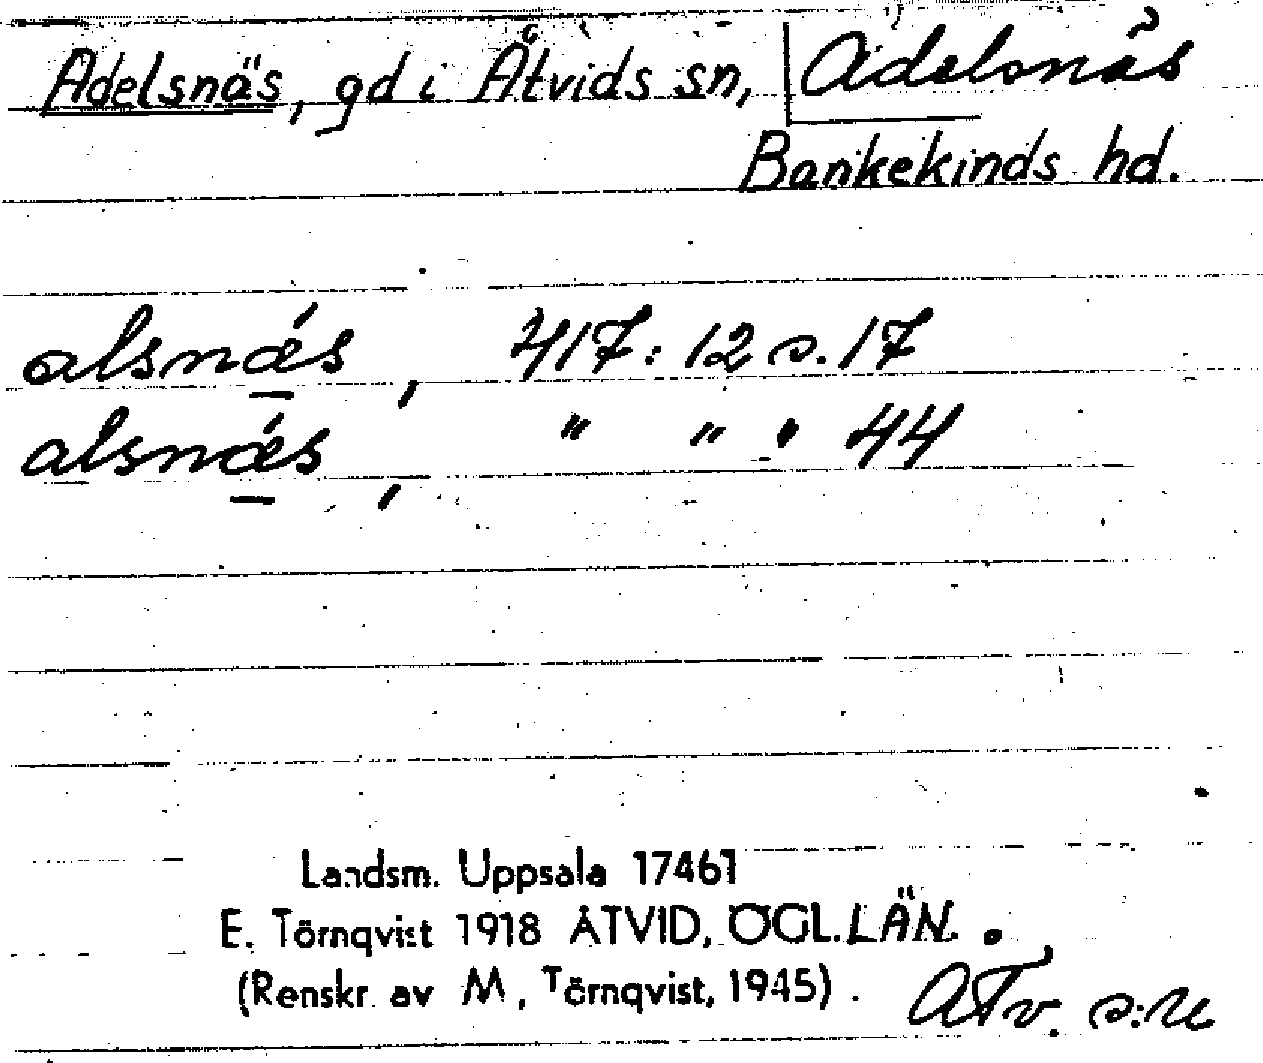 Adelsnäs, gd i Åtvids sn, Adelsnäs
Bankekinds hd.
alsnǽ̲s, 417:12 s. 17
alsnǽ̲s, " " " 44
Landsm. Uppsala 17461
E. Törnqvist 1918 ÅTVID, ÖGL.LÄN.
(Renskr. av M, Törnqvist, 1945).